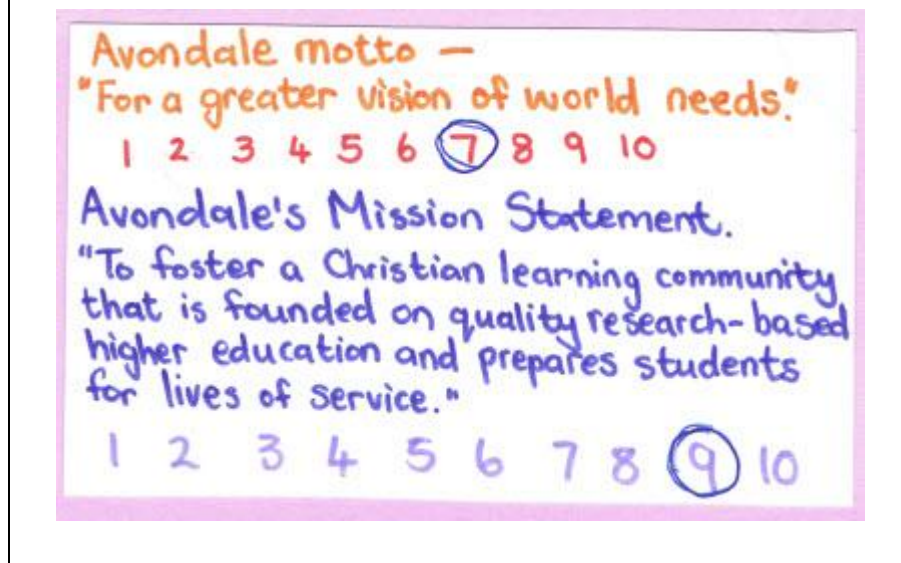 Avondale motto —
"For a greater vision of world needs."
1 2 3 4 5 6 7 8 9 10
Avondale's Mission Statement.
"To foster a Christian learning community
that is founded on quality research-based
higher education and prepares students
for lives of service."
1 2 3 4 5 6 7 8 9 10